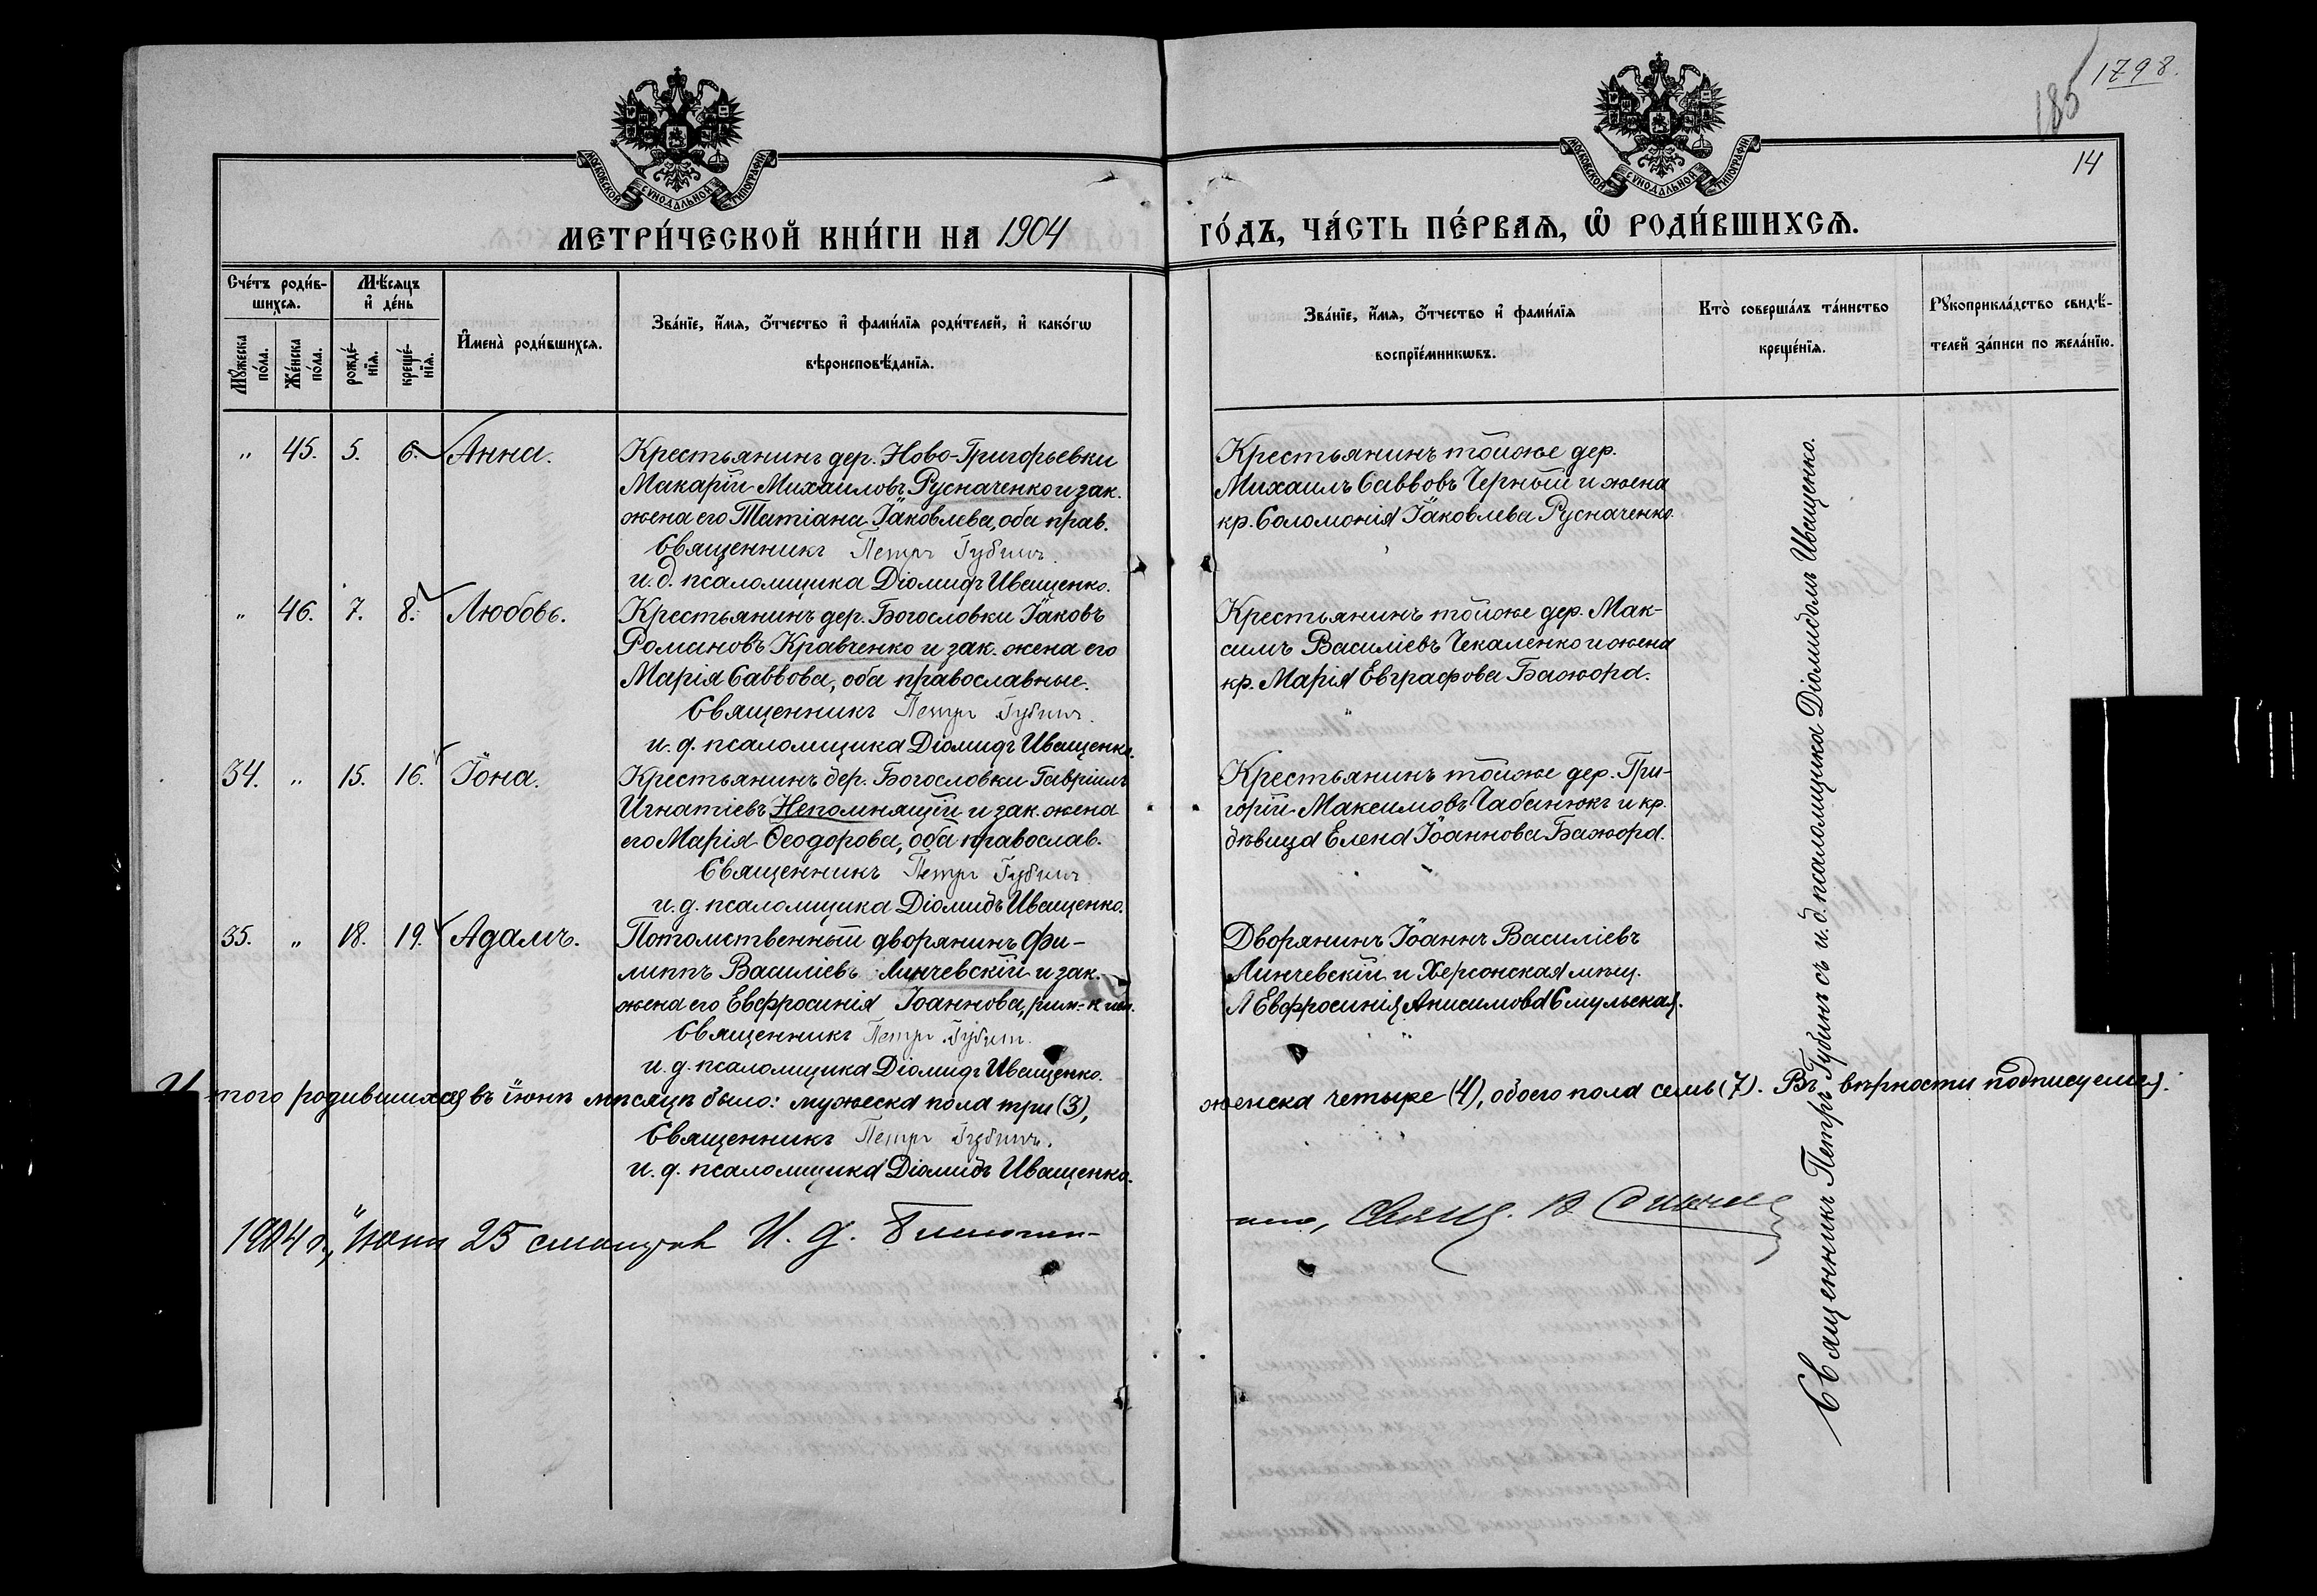 1798.
185
14
МОСКОВСКОЙ СѴНОДАЛЬНОЙ ТИПОГРАФІИ
МОСКОВСКОЙ СѴНОДАЛЬНОЙ ТИПОГРАФІИ
МЕТРИ́ЧЕСКОЙ КНИ́ГИ НА 1904
ГО́ДЪ, ЧА́СТЬ ПЕ́РВАѦ, Ѽ РОДИ́ВШИХСѦ.
Сче́тъ роди́в-
шихсѧ.
Мꙋ́жеска по́ла.
Же́нска по́ла.
Мѣ́сѧцъ
и҆ де́нь
рожде́-
нїѧ.
креще́-
нїѧ.
И҆мена̀ роди́вшихсѧ.
Зва́нїе, и҆́мѧ, ѻ҆́тчество и҆ фами́лїѧ роди́телей, и҆ како́гѡ
вѣроисповѣ́данїѧ.
Зва́нїе, и҆́мѧ, ѻ҆́тчество и҆ фами́лїѧ
воспрїе́мникѡвъ.
Кто̀ соверша́лъ та́инство
креще́нїѧ.
Рꙋкоприкла́дство свидѣ́-
телей за́писи по жела́нїю.
" 45. 5. 6. Анна.
Крестьянинъ дер. Ново-Григорьевки
Макарій Михаиловъ Русначенко и зак.
жена его Татіана Іаковлева, оба прав.
Священникъ Петръ Губинъ
и. д. псаломщика Діомидъ Иващенко.
Крестьянинъ тойже дер.
Михаилъ Саввовъ Черный и жена
кр. Соломонія Іаковлева Русначенко.
" 46. 7. 8. Любовь.
Крестьянинъ дер. Богословки Іаковъ
Романовъ Кравченко и зак. жена его
Марія Саввова, оба православные.
Священникъ Петръ Губинъ.
и. д. псаломщика Діомидъ Иващенко.
Крестьянинъ тойже дер. Мак-
симъ Василіевъ Чекаленко и жена
кр. Марія Евграфова Бажора.
34. " 15. 16. Іона.
Крестьянинъ дер. Богословки Гавріилъ
Игнатіевъ Непомнящій и зак. жена
его Марія Ѳеодорова, оба православ.
Священникъ Петръ Губинъ
и. д. псаломщика Діомидъ Иващенко.
Крестьянинъ тойже дер. Гри-
горій Максимовъ Чабанюкъ и кр.
дѣвица Елена Іоаннова Бажора.
35. " 18. 19. Адамъ.
Потомственный дворянинъ Фи-
липпъ Василіевъ Линчевскій и зак.
жена его Евфросинія Іоаннова, рим.-к
Священникъ Петръ Губинъ.
и. д. псаломщика Діомидъ Иващенко.
Дворянинъ Іоаннъ Василіевъ
Линчевскій и Херсонская мѣщ.
Евфросинія Анисимова Смульская.
Итого родившихся въ іюнѣ мѣсяцѣ было: мужеска пола три (3),
женска четыре (4), обоего пола семь (7). Въ вѣрности подписуемся.
Священникъ Петръ Губинъ.
и. д. псаломщика Діомидъ Иващенко.
1904 г., Іюня 25 И. д.
Свящ.
Священникъ Петръ Губинъ съ и. д. псаломщика Діомидомъ Иващенко.